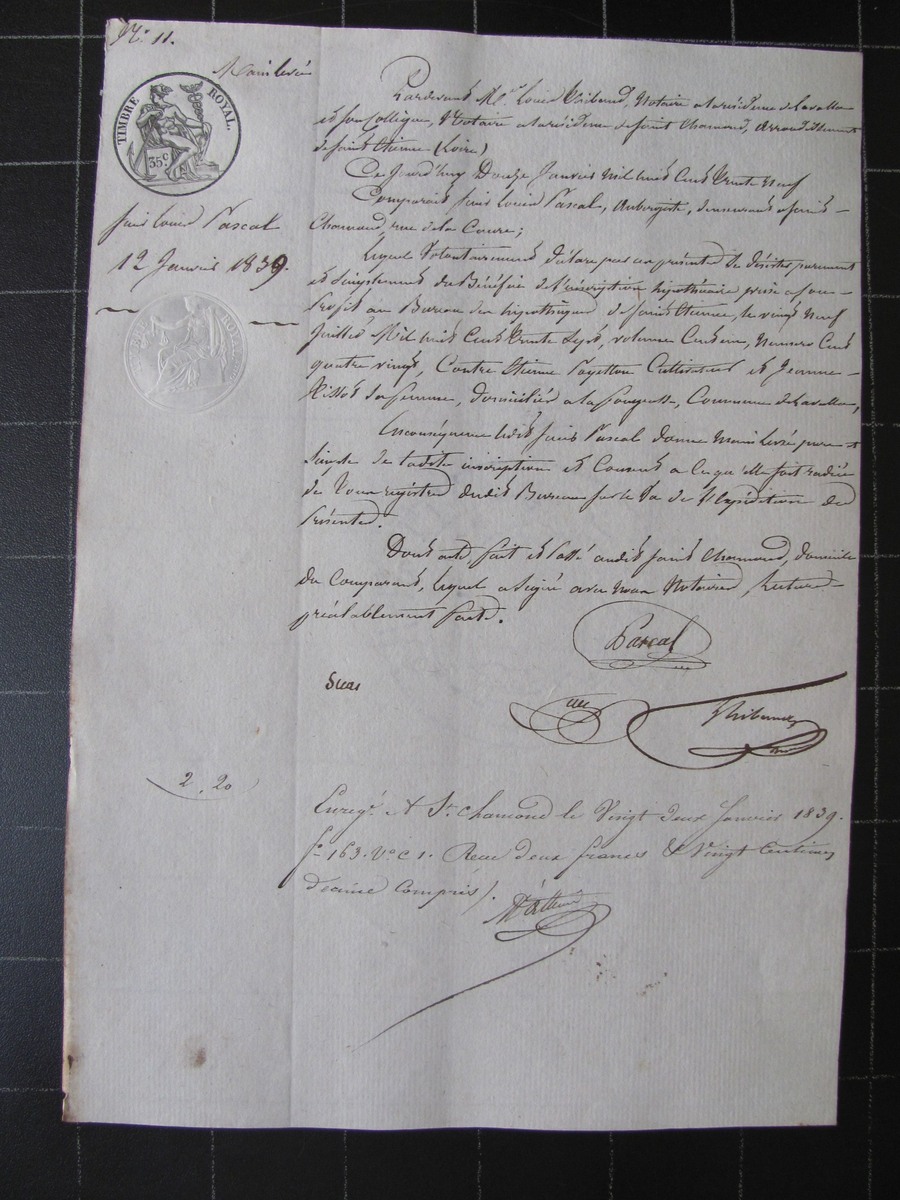 N.° 11.
Mainlevée
TIMBRE ROYAL.
35 c
Jean Louis Pascal
12 Janvier 1839.
Pardevant M.e Louis Thibaud, Notaire à la résidence de Lavalla
et son Collègue, Notaire à la résidence de Saint Chamond, Arrondissement
de Saint Etienne (Loire)
Ce jourd'huy Douze Janvier mil huit Cent trente neuf
Comparait Jean Louis Pascal, Aubergiste, demeurant à Saint-
Chamond, rue de la
Lequel Volontairement déclare par ces présentes se désister purement
et simplement du Bénéfice de l'inscription hypothécaire prise à son
Profit au Bureau des hypothèques de Saint Etienne, le vingt neuf
Juillet Mil huit Cent trente Sept, volume Cent Numéro Cent
quatre vingt, Contre Etienne Cultivateur et Jeanne
sa femme, domiciliés à la Commune de Lavalla,
En conséquence ledit Jean Pascal donne Main levée pure et
simple de ladite inscription et Consent à ce qu'elle soit radiée
de tous registres dudit Bureau sur le Vu de l'Expédition des
Présentes.
Dont acte, fait et Passé audit Saint Chamond, domicile
du Comparant, lequel a Signé avec nous Notaires, Lecture
préalablement faite.
Pascal
Thibaud
2, 20
Enregé. à St. Chamond le Vingt deux Janvier 1839.
fo 163. Vo c 1. Recu deux francs & Vingt Centimes
décime Compris /.